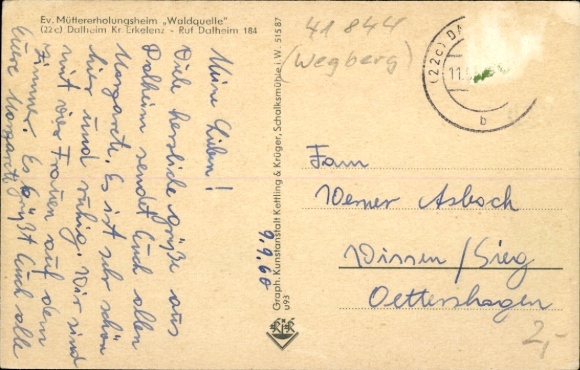 Ev. Müttererholungsheim „Waldquelle"
(22c) Dalheim Kr. Erkelenz - Ruf Dalheim 184
Meine Lieben!
Viele herzliche Grüße aus
Dalheim sendet Euch allen
Margarete. Es ist sehr schön
hier und ruhig. Wir sind
mit vier Frauen auf dem
Zimmer. Es grüßt Euch alle
Eure Margarete
9.9.60
Graph. Kunstanstalt Kettling & Krüger, Schalksmühle i. W. 51587
U93
41 844
(Wegberg)
(22c) DA
11.
b
Fam
Werner Asbach
Wissen/Sieg
Oettershagen
2,-